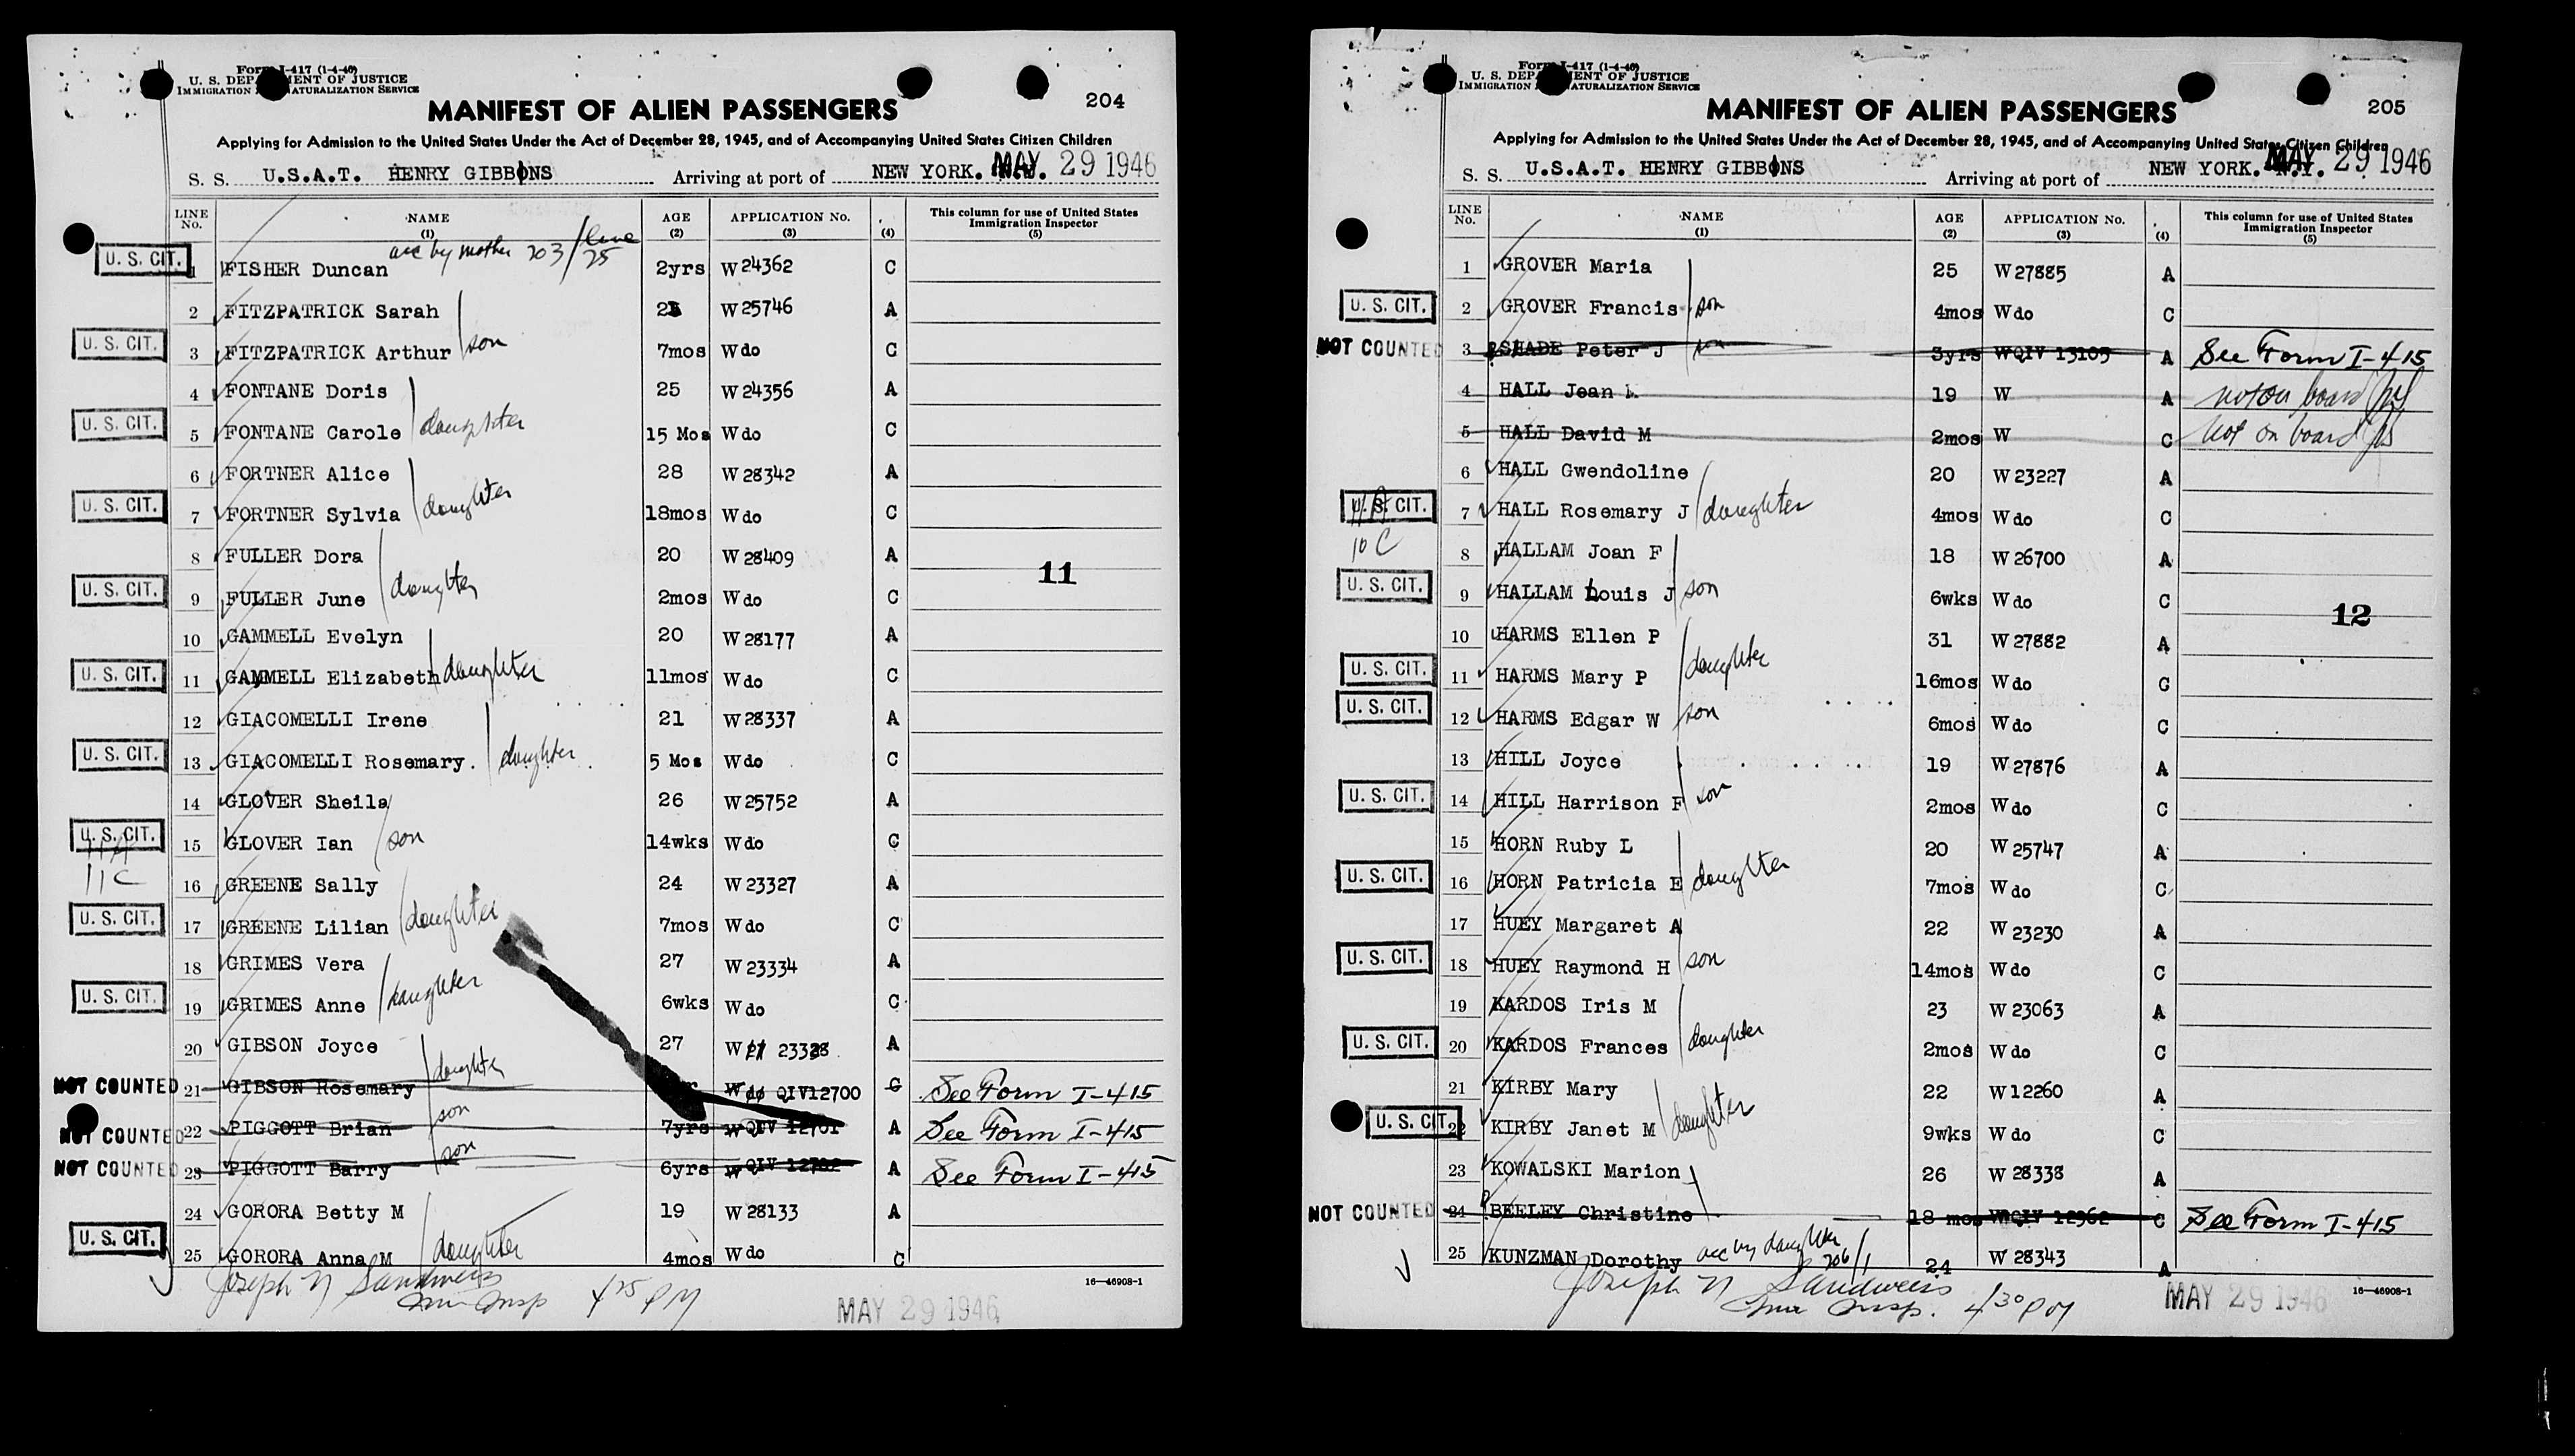 Form I-417 (1-4-46)
U. S. DEPARTMENT OF JUSTICE
IMMIGRATION NATURALIZATION SERVICE
204
MANIFEST OF ALIEN PASSENGERS
Applying for Admission to the United States Under the Act of December 28, 1945, and of Accompanying United States Citizen Children
S. S. U.S.A.T. HENRY GIBBONS Arriving at port of NEW YORK. MAY 29 1946
LINE No. NAME (1) AGE (2) APPLICATION No. (3) (4) This column for use of United States Immigration Inspector (5)
acc by mother 203/line 25
U. S. CIT. 1 FISHER Duncan 2yrs W 24362 C
2 FITZPATRICK Sarah W 25746 A
U. S. CIT. 3 FITZPATRICK Arthur son 7mos W do C
4 FONTANE Doris 25 W 24356 A
U. S. CIT. 5 FONTANE Carole daughter 15 Mos W do C
6 FORTNER Alice 28 W 28342 A
U. S. CIT. 7 FORTNER Sylvia daughter 18mos W do C
8 FULLER Dora 20 W 28409 A
11
U. S. CIT. 9 FULLER June daughter 2mos W do C
10 GAMMELL Evelyn 20 W 28177 A
U. S. CIT. 11 GAMMELL Elizabeth daughter 11mos W do C
12 GIACOMELLI Irene 21 W 28337 A
U. S. CIT. 13 GIACOMELLI Rosemary. daughter 5 Mos W do C
14 GLOVER Sheila 26 W 25752 A
U. S. CIT. 15 GLOVER Ian son 14wks W do C
11A
11C
16 GREENE Sally 24 W 23327 A
U. S. CIT. 17 GREENE Lilian daughter 7mos W do C
18 GRIMES Vera 27 W 23334 A
U. S. CIT. 19 GRIMES Anne daughter 6wks W do C
20 GIBSON Joyce 27 W 23328 A
NOT COUNTED 21 GIBSON Rosemary daughter W do QIV12700 C See Form I-415
NOT COUNTED 22 PIGGOTT Brian son 7yrs W QIV 12701 A See Form I-415
NOT COUNTED 23 PIGGOTT Barry son 6yrs W QIV 12702 A See Form I-415
24 GORORA Betty M 19 W 28133 A
U. S. CIT. 25 GORORA Anna M daughter 4mos W do C
16—46908-1
Joseph N Sandweiss
Imm Insp 4 25 PM
MAY 29 1946
Form I-417 (1-4-46)
U. S. DEPARTMENT OF JUSTICE
IMMIGRATION NATURALIZATION SERVICE
205
MANIFEST OF ALIEN PASSENGERS
Applying for Admission to the United States Under the Act of December 28, 1945, and of Accompanying United States Citizen Children
S. S. U.S.A.T. HENRY GIBBONS Arriving at port of NEW YORK. N.Y. MAY 29 1946
LINE No. NAME (1) AGE (2) APPLICATION No. (3) (4) This column for use of United States Immigration Inspector (5)
1 GROVER Maria 25 W 27885 A
U. S. CIT. 2 GROVER Francis son 4mos W do C
NOT COUNTED 3 SHADE Peter J son 3yrs W QIV 13103 A See Form I-415
4 HALL Jean 19 W A not on board
5 HALL David M 2mos W C Not on board
6 HALL Gwendoline 20 W 23227 A
U. S. CIT. 7 HALL Rosemary J daughter 4mos W do C
11A
10 C
8 HALLAM Joan F 18 W 26700 A
U. S. CIT. 9 HALLAM Louis J son 6wks W do C
12
10 HARMS Ellen P 31 W 27882 A
U. S. CIT. 11 HARMS Mary P daughter 16mos W do C
U. S. CIT. 12 HARMS Edgar W son 6mos W do C
13 HILL Joyce 19 W 27876 A
U. S. CIT. 14 HILL Harrison F son 2mos W do C
15 HORN Ruby L 20 W 25747 A
U. S. CIT. 16 HORN Patricia E daughter 7mos W do C
17 HUEY Margaret A 22 W 23230 A
U. S. CIT. 18 HUEY Raymond H son 14mos W do C
19 KARDOS Iris M 23 W 23063 A
U. S. CIT. 20 KARDOS Frances daughter 2mos W do C
21 KIRBY Mary 22 W 12260 A
U. S. CIT. 22 KIRBY Janet M daughter 9wks W do C
23 KOWALSKI Marion 26 W 28338 A
NOT COUNTED 24 BEELEY Christine 18 mos W QIV 12962 C See Form I-415
25 KUNZMAN Dorothy acc by daughter 206/1 24 W 28343 A
Joseph N Sandweiss
Imm Insp. 4 30 PM
MAY 29 1946
16—46908-1